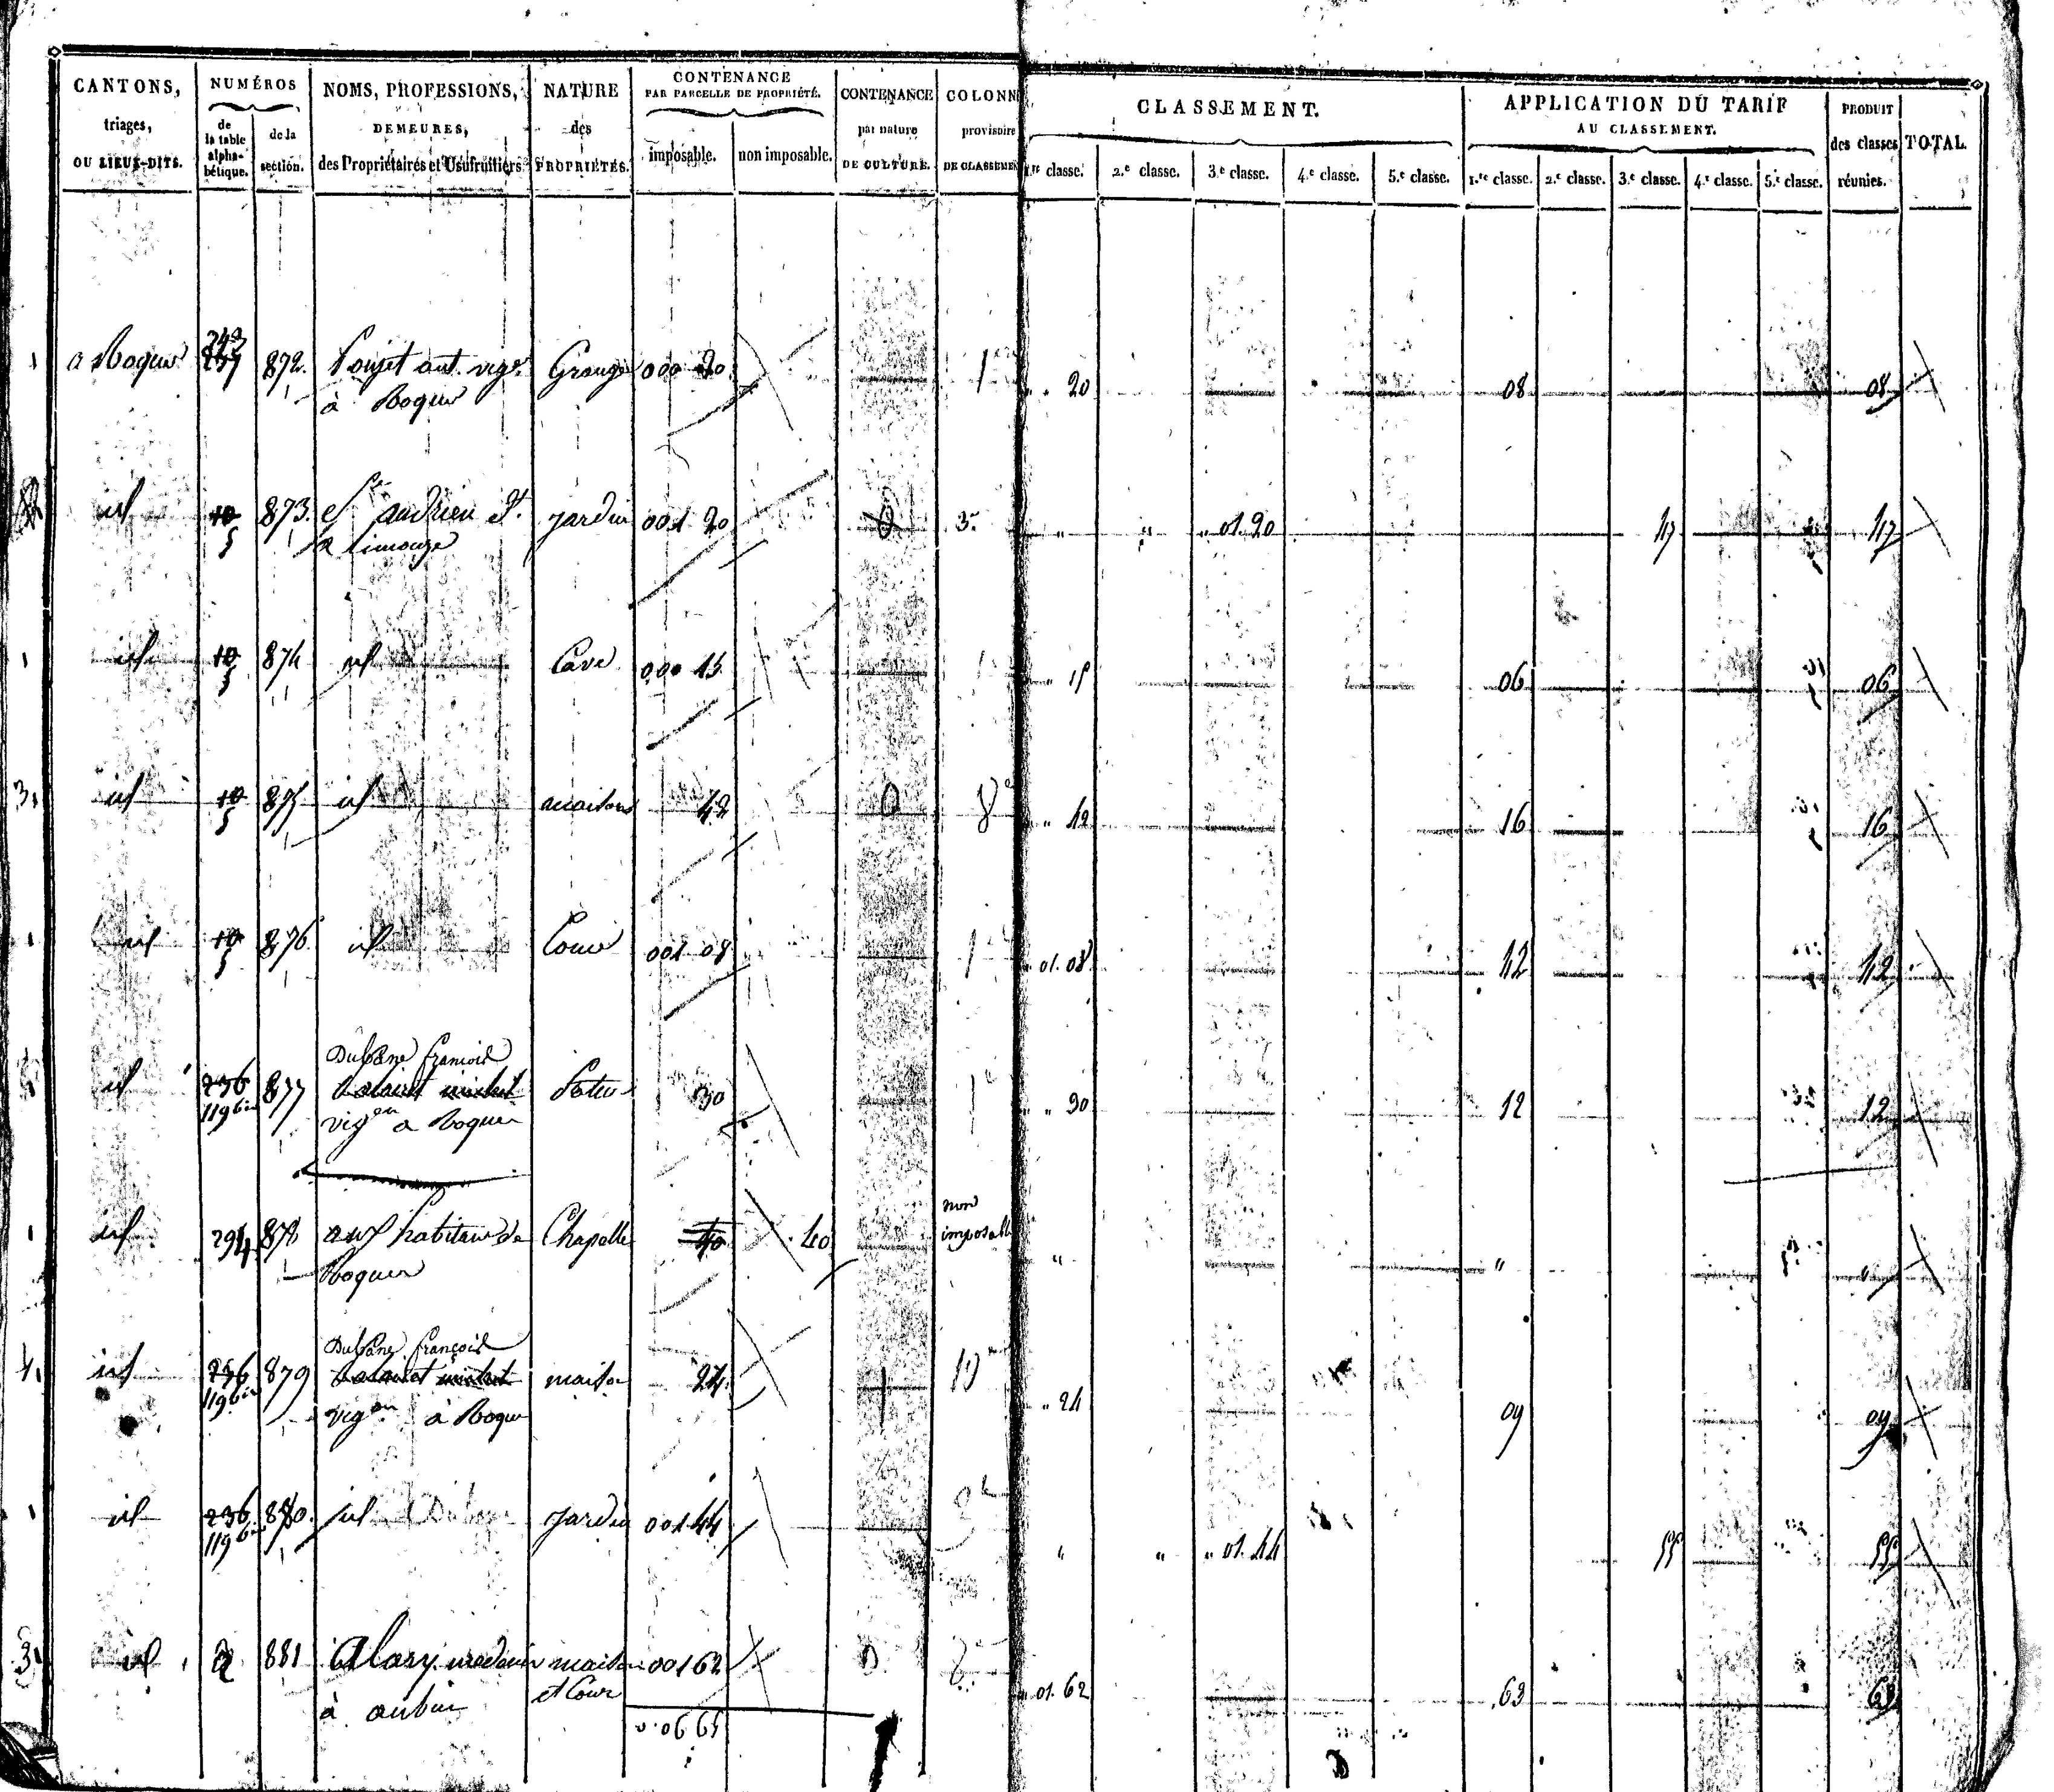 CANTONS, triages, OU LIEUX-DITS.
NUMÉROS
de la table alphabétique.
de la section.
NOMS, PROFESSIONS, DEMEURES, des Propriétaires et Usufruitiers
NATURE des PROPRIÉTÉS.
CONTENANCE PAR PARCELLE DE PROPRIÉTÉ.
imposable.
non imposable.
CONTENANCE par nature DE CULTURE.
COLONN provisoire DE CLASSEMEN
CLASSEMENT.
1.re classe. 2.e classe. 3.e classe. 4.e classe. 5.e classe.
APPLICATION DU TARIF AU CLASSEMENT.
1.re classe. 2.e classe. 3.e classe. 4.e classe. 5.e classe.
PRODUIT des classes réunies.
TOTAL.
872. Poujet ant. vig.
à Roquer
000 20 20 08 08
id 10 873. jardin 001 20 3. " " " 01.20 117 117
5
à limouze
id 10 874 id Cave 000 15 " 15 06 06
5
id 10 875 id maison 42 " 42 16 16
5
id 10 876 id Cour 001 08 1 01.08 42 42
5
françois
id 236 877 Patus 30 1 " 30 12 12
119 bis vig.on a Roquer
non
id 294 878 aux habitans de Chapelle 40 40 imposable " " "
Roquer
françois
id 236 879 maison 24 " 24 09 09
119 bis vig.on à Roquer
id 236 880. id jardin 001 44 " " " 01.44 55 55
119 bis
3 id 2 881 Alary maison 001 62 01.62 63 63
à aubin et Cour
0.06 65